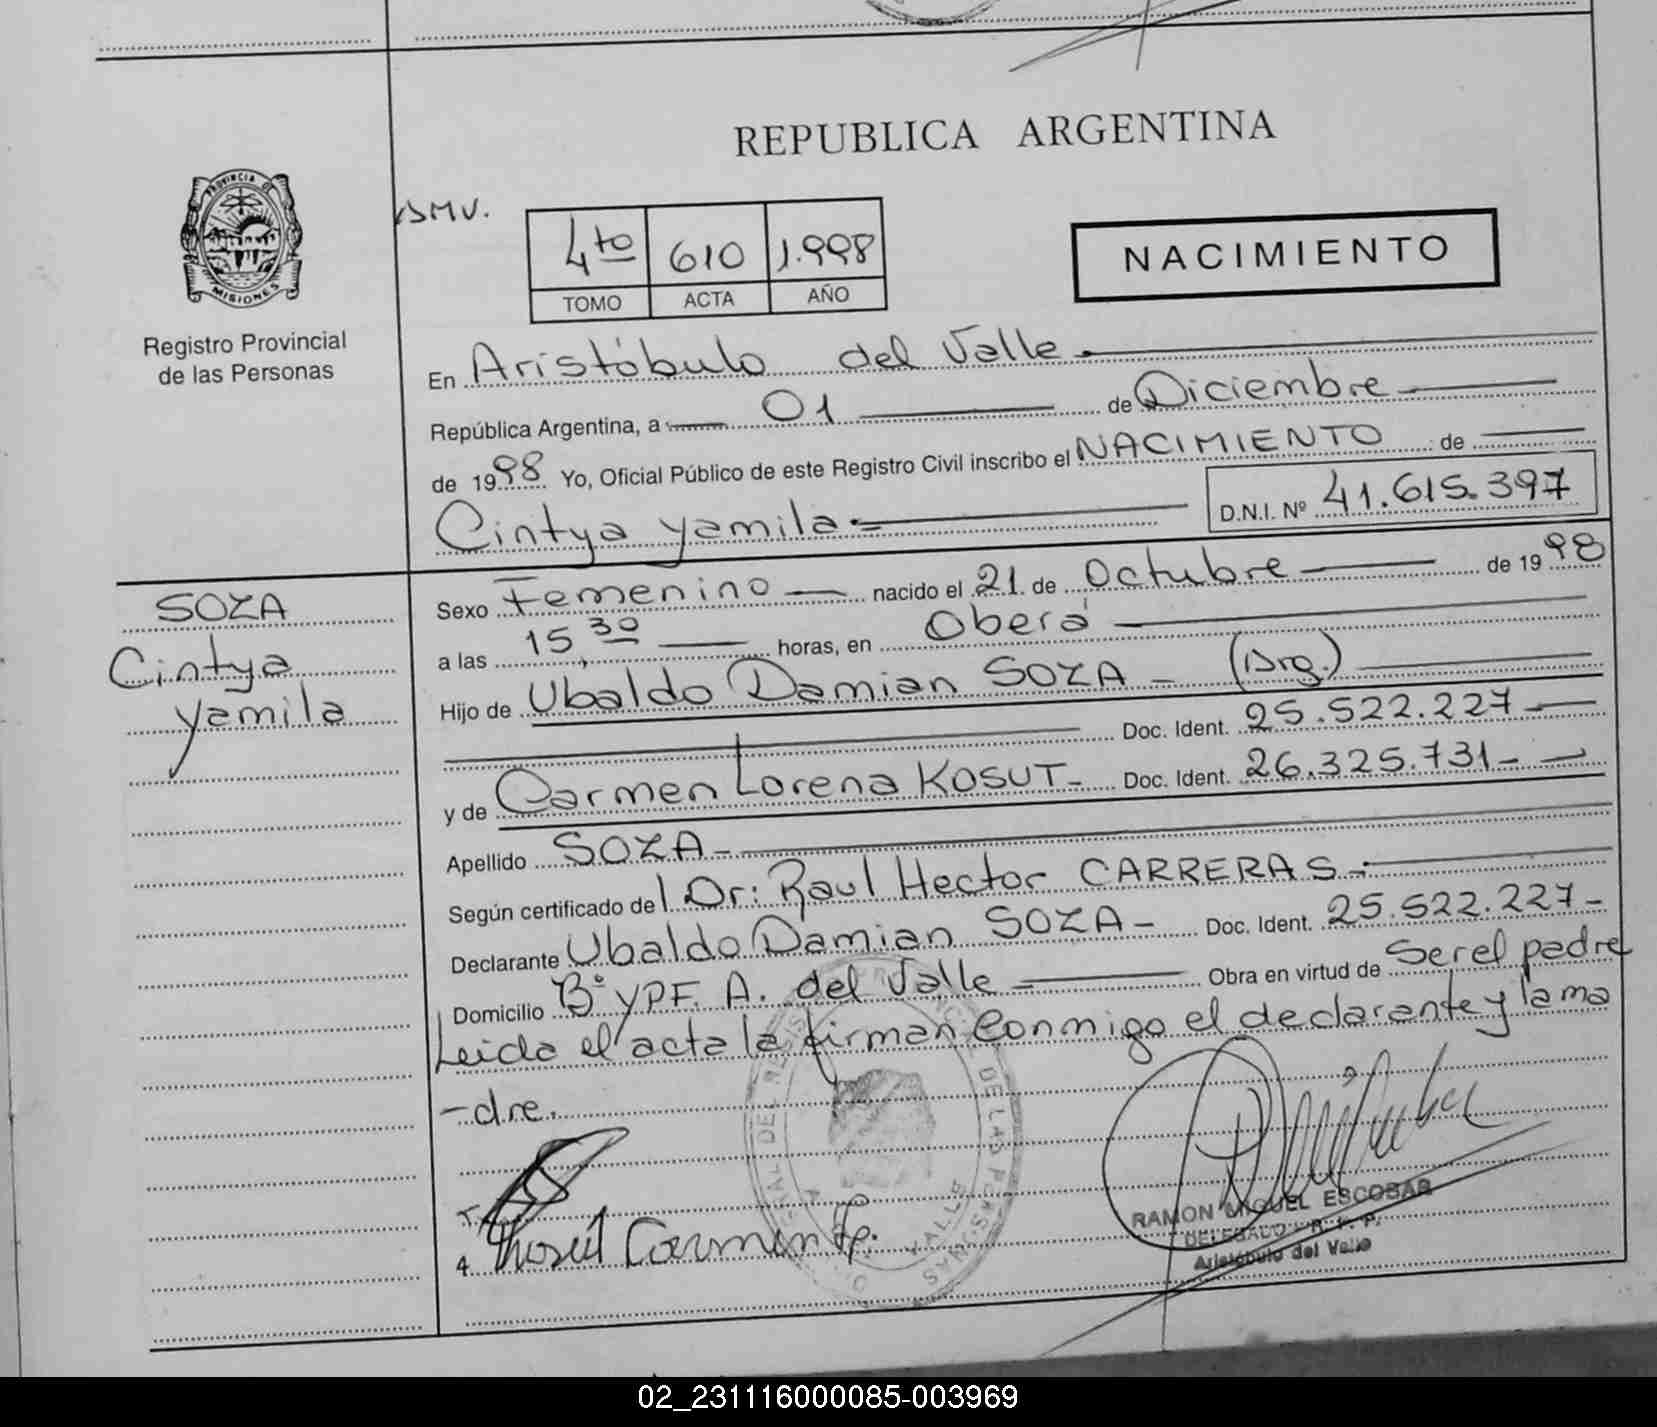 REPUBLICA ARGENTINA
PROVINCIA DE
MISIONES
Registro Provincial
de las Personas
SMV.
4to 610 1.998
TOMO ACTA AÑO
NACIMIENTO
En Aristóbulo del Valle
República Argentina, a 01 de Diciembre
de 1998 Yo, Oficial Público de este Registro Civil inscribo el NACIMIENTO de
Cintya Yamila.= D.N.I. Nº 41.615.397
SOZA
Cintya
Yamila
Sexo Femenino nacido el 21 de Octubre de 1998
a las 15,30 horas, en Oberá
Hijo de Ubaldo Damian SOZA - (Arg.)
Doc. Ident. 25.522.227-
y de Carmen Lorena KOSUT- Doc. Ident. 26.325.731-
Apellido SOZA-
Según certificado del Dr: Raul Hector CARRERAS.-
Declarante Ubaldo Damian SOZA- Doc. Ident. 25.522.227-
Domicilio Bº YPF. A. del Valle Obra en virtud de Ser el padre
Leida el acta la firman Conmigo el declarante y la ma
-dre.
RAMON MIGUEL ESCOBAR
DELEGADO R. P. P.
Aristóbulo del Valle
02_231116000085-003969